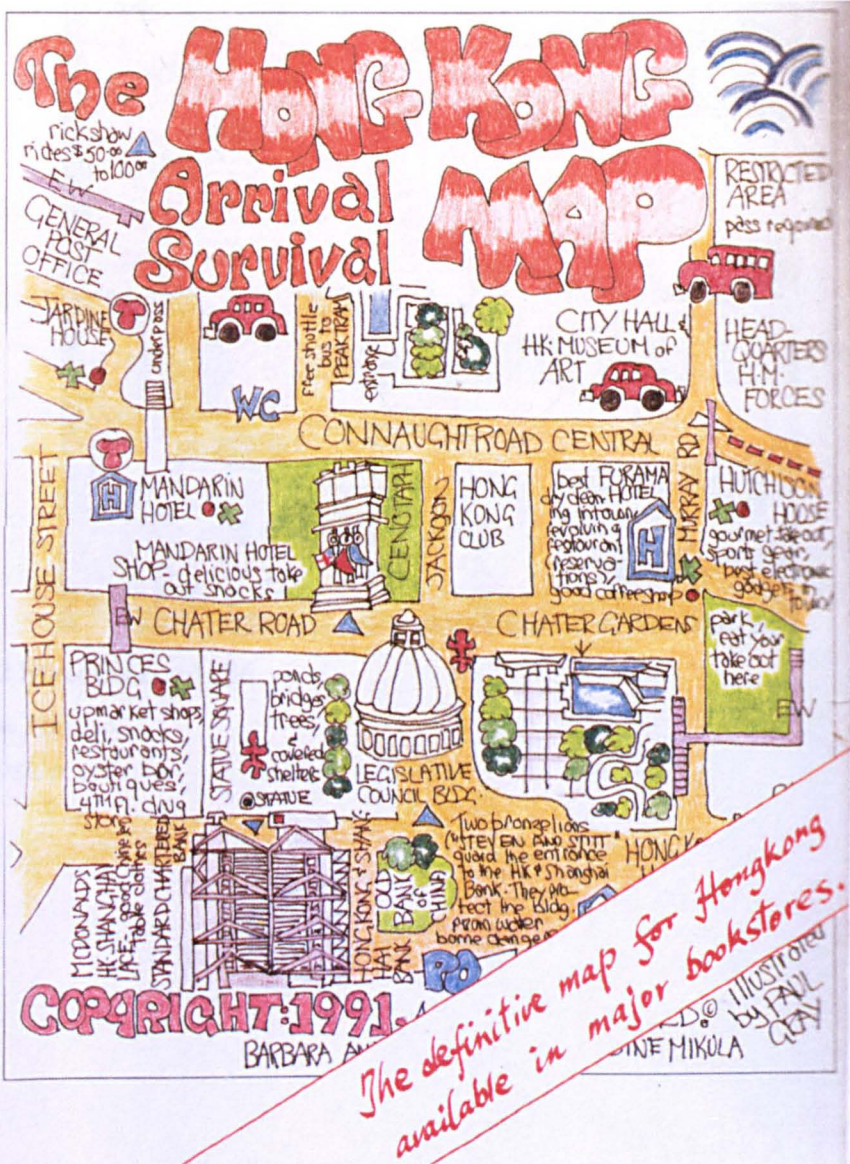 The HONG KONG
Arrival MAP
Survival
rickshaw
rides $50.00
to 100.00
EW
GENERAL
POST
OFFICE
RESTRICTED
AREA
pass required
JARDINE
HOUSE
underpass
WC
free shuttle
bus to
PEAK TRAM
entrance
CITY HALL &
HK MUSEUM of
ART
HEAD-
QUARTERS
H.M.
FORCES
CONNAUGHT ROAD CENTRAL
ICE HOUSE STREET
H
MANDARIN
HOTEL
MANDARIN HOTEL
SHOP - delicious take
out snacks
CENOTAPH
JACKSON
HONG
KONG
CLUB
best FURAMA
dry clean HOTEL
ing in town,
revolving
restaurant
(reserva-
tions),
good coffee shop
H
MURRAY RD
HUTCHISON
HOUSE
gourmet take out,
sports gear,
best electronic
gadgets in
town
EW
CHATER ROAD
CHATER GARDENS
park,
eat your
take out
here
EW
PRINCES
BLDG
upmarket shops,
deli, snacks,
restaurants,
oyster bar,
boutiques,
4TH fl. drug
store
STATUE SQUARE
ponds,
bridges,
trees,
&
covered
shelters
STATUE
LEGISLATIVE
COUNCIL BLDG.
MCDONALDS
HK-SHANGHAI
LACE-
STANDARD CHARTERED
BANK
HONGKONG & SHANG
HAI
BANK
OLD
BANK
of
CHINA
Two bronze lions
"STEVEN AND STITT"
guard the entrance
to the HK & Shanghai
Bank. They pro-
tect the bldg.
from water
borne dangers
HONG K
PO
COPYRIGHT: 1991.
BARBARA AN
INE MIKULA
illustrated
by PAUL
GRAY
The definitive map for Hongkong
available in major bookstores.